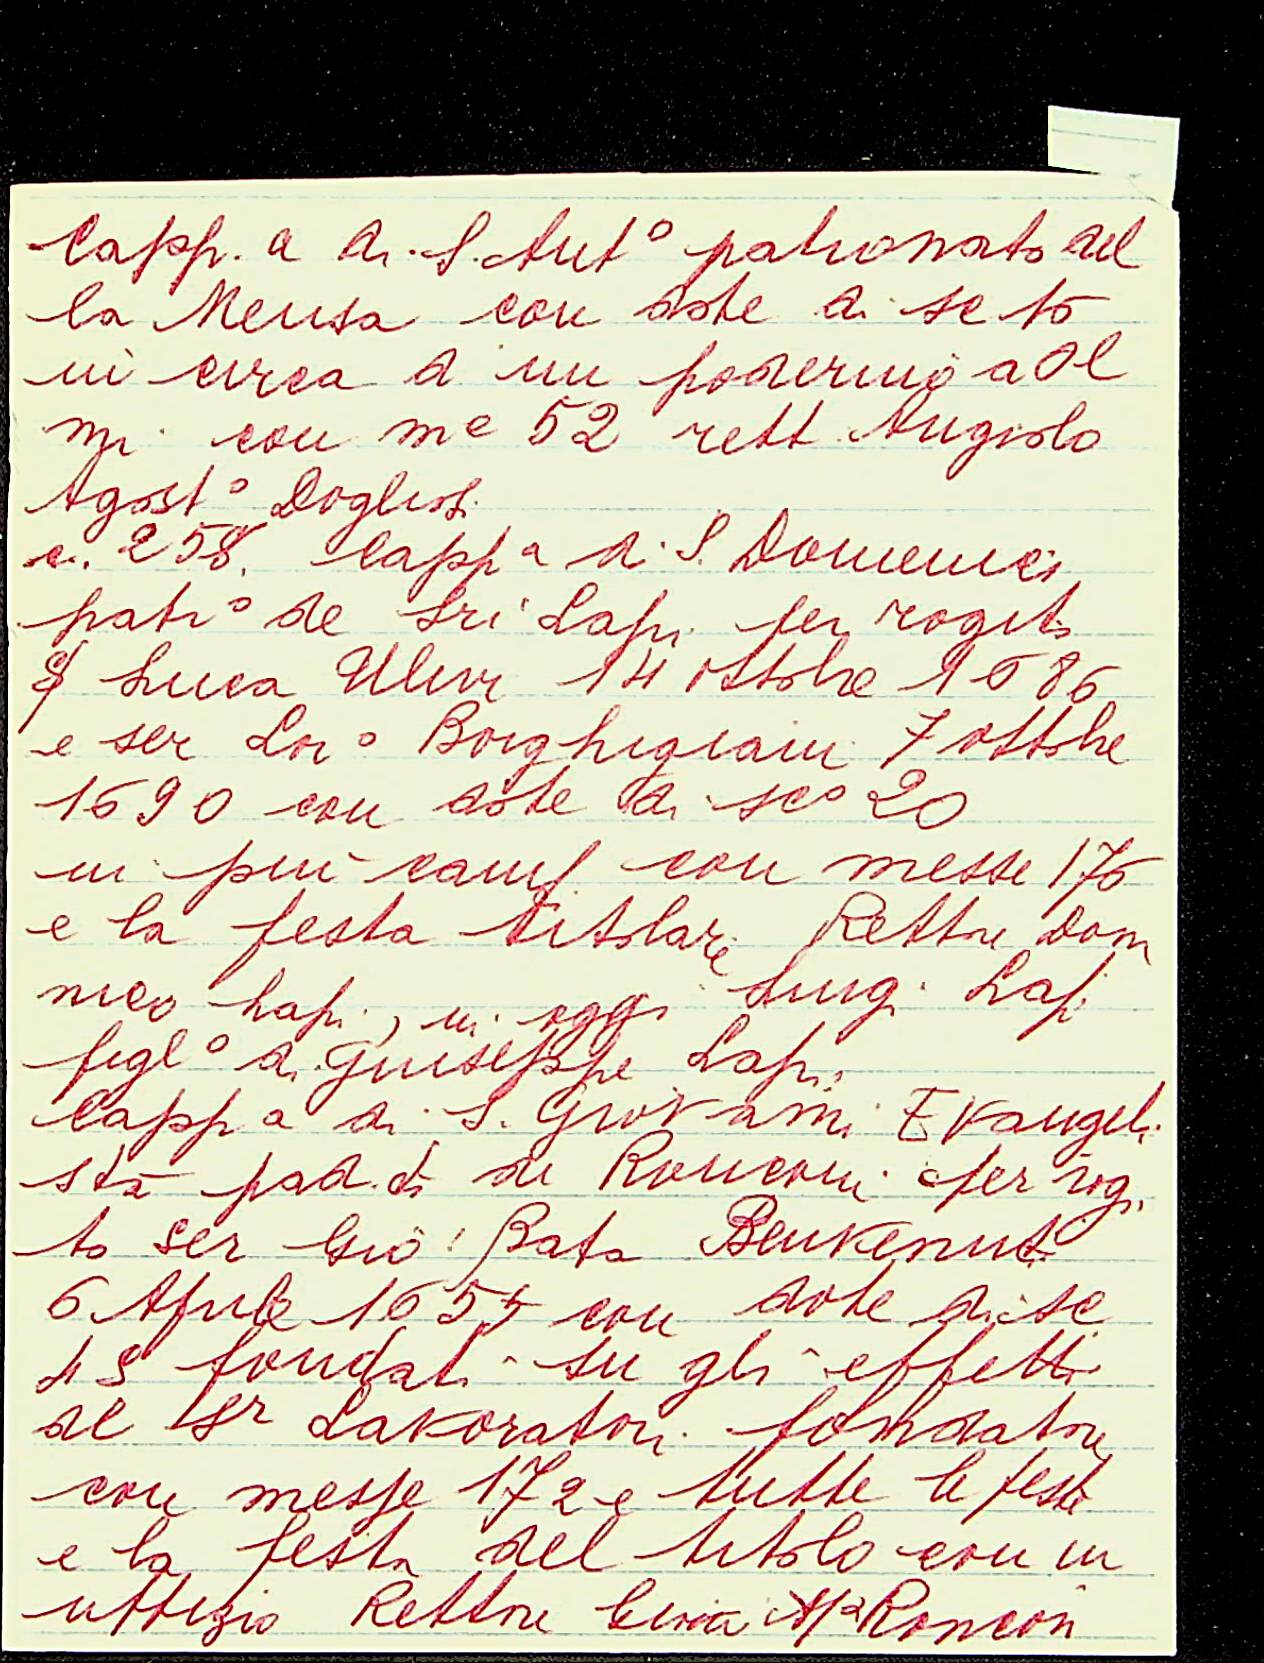 Capp.a di S. Ant° patronato del
la Mensa con dote di sc 10
in circa d un poderino a Ol
mi con me 52 rett Angiolo
Agost° Dogliosi
c. 258. Capp a di S. Domenico
patr° de Sri Lapi per rogito
Luca Ulivi 14 ottobre 1686
e ser Lor° Borghigiani 7 ottobre
1690 con dote di sc° 20
in più campi con messe 176
e la festa titolare Rettore Dom
nico Lapi, in oggi Luigi Lapi
figl° di Giuseppe Lapi,
Capp a di S. Giovanni Evangeli
sta pad. de Ronconi per rogi
to ser Gio: Bata Benvenuti
6 Aprile 1655 con dote di sc
fondati su gli effetti
del Sr Lavoratori fondatore
con messe 172 e tutte le feste
e la festa del titolo con un
uffizio Rettore Ma Ronconi